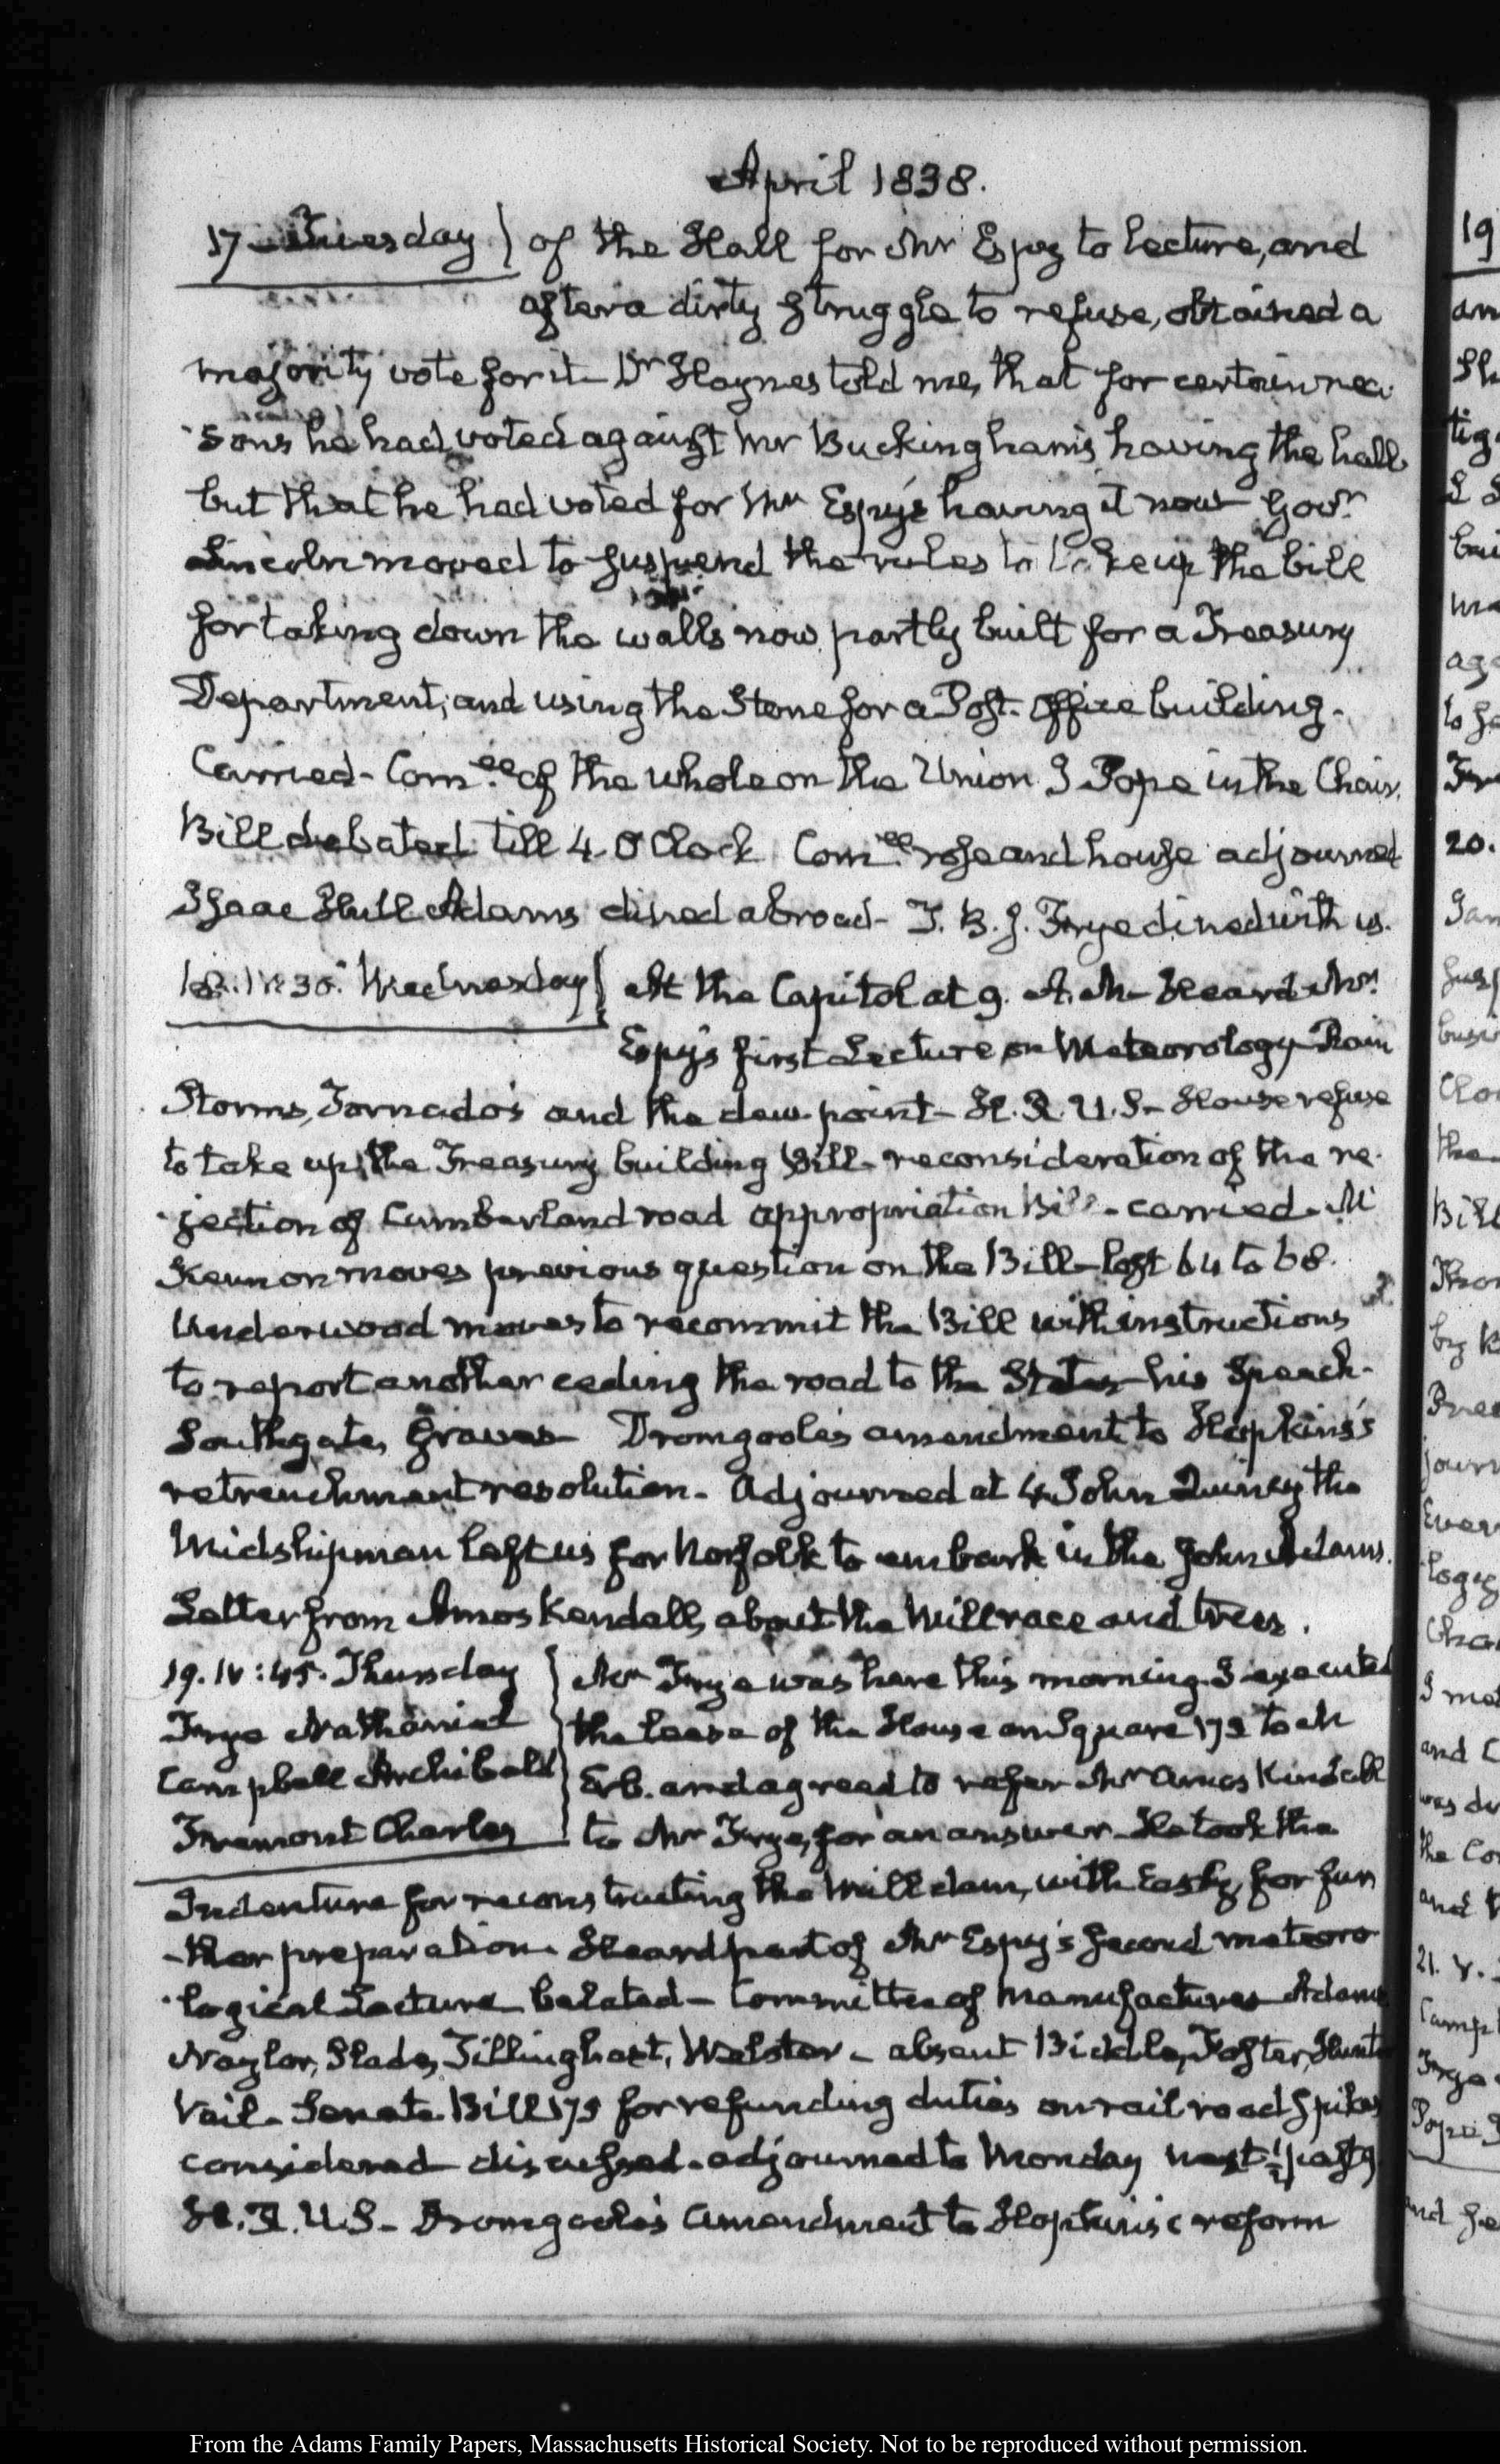 April 1838.
17 Tuesday } of the Hall for Mr Espy to lecture, and
after a dirty struggle to refuse, obtained a
majority vote for it – Dr Haynes told me, that for certain rea-
sons he had voted against Mr Buckingham's having the hall
but that he had voted for Mr Espy's having it now – Govr
Lincoln moved to suspend the rules to take up the bill
for taking down the walls now partly built for a Treasury
Department, and using the Stone for a Post-Office building.
Carried – Comee of the whole on the Union J Pope in the Chair.
Bill debated till 4. O'Clock Comee rose and house adjourned
Isaac Hull Adams dined abroad – T. B. J. Frye dined with us.
18. Wednesday } At the Capitol at 9. A.M – Heard Mr
Espy's first Lecture on Meteorology – Rain
Storms, Tornado's and the dew-point – H. R. U. S – House refuse
to take up the Treasury building Bill – reconsideration of the re-
jection of Cumberland road appropriation Bill – carried – Mc
Kennon moves previous question on the Bill – lost 64 to 68.
Underwood moves to recommit the Bill with instructions
to report another ceding the road to the States – his Speech –
Southgate, Graves – Dromgoole's amendment to Hopkins's
retrenchment resolution – Adjourned at 4 John Quincy the
Midshipman left us for Norfolk to embark in the John Adams.
Letter from Amos Kendall, about the Millrace and trees.
19. IV:45. Thursday } Mr Frye was here this morning. I executed
Frye Nathaniel } the lease of the House on Square 173 to
Campbell Archibald } Erb. and agreed to refer Mr Amos Kendall
Fremont Charles } to Mr Frye, for an answer – He took the
Indenture for reconstructing the Mill dam, with Easby, for fur
-ther preparation. Heard part of Mr Espy's second meteoro
-logical Lecture belated – Committee of Manufactures Adams
Naylor, Slade, Tillinghast, Webster – absent Biddle, Foster, Hunter
Vail – Senate Bill 179 for refunding duties on rail road Spikes
considered discussed – adjourned to Monday next ½ past 9
H. R. U. S – Dromgoole's Amendment to Hopkins's reform
19
an
20.
Bill
and C
the Co
21. V.
Camp
Frye
Pope
and
From the Adams Family Papers, Massachusetts Historical Society. Not to be reproduced without permission.